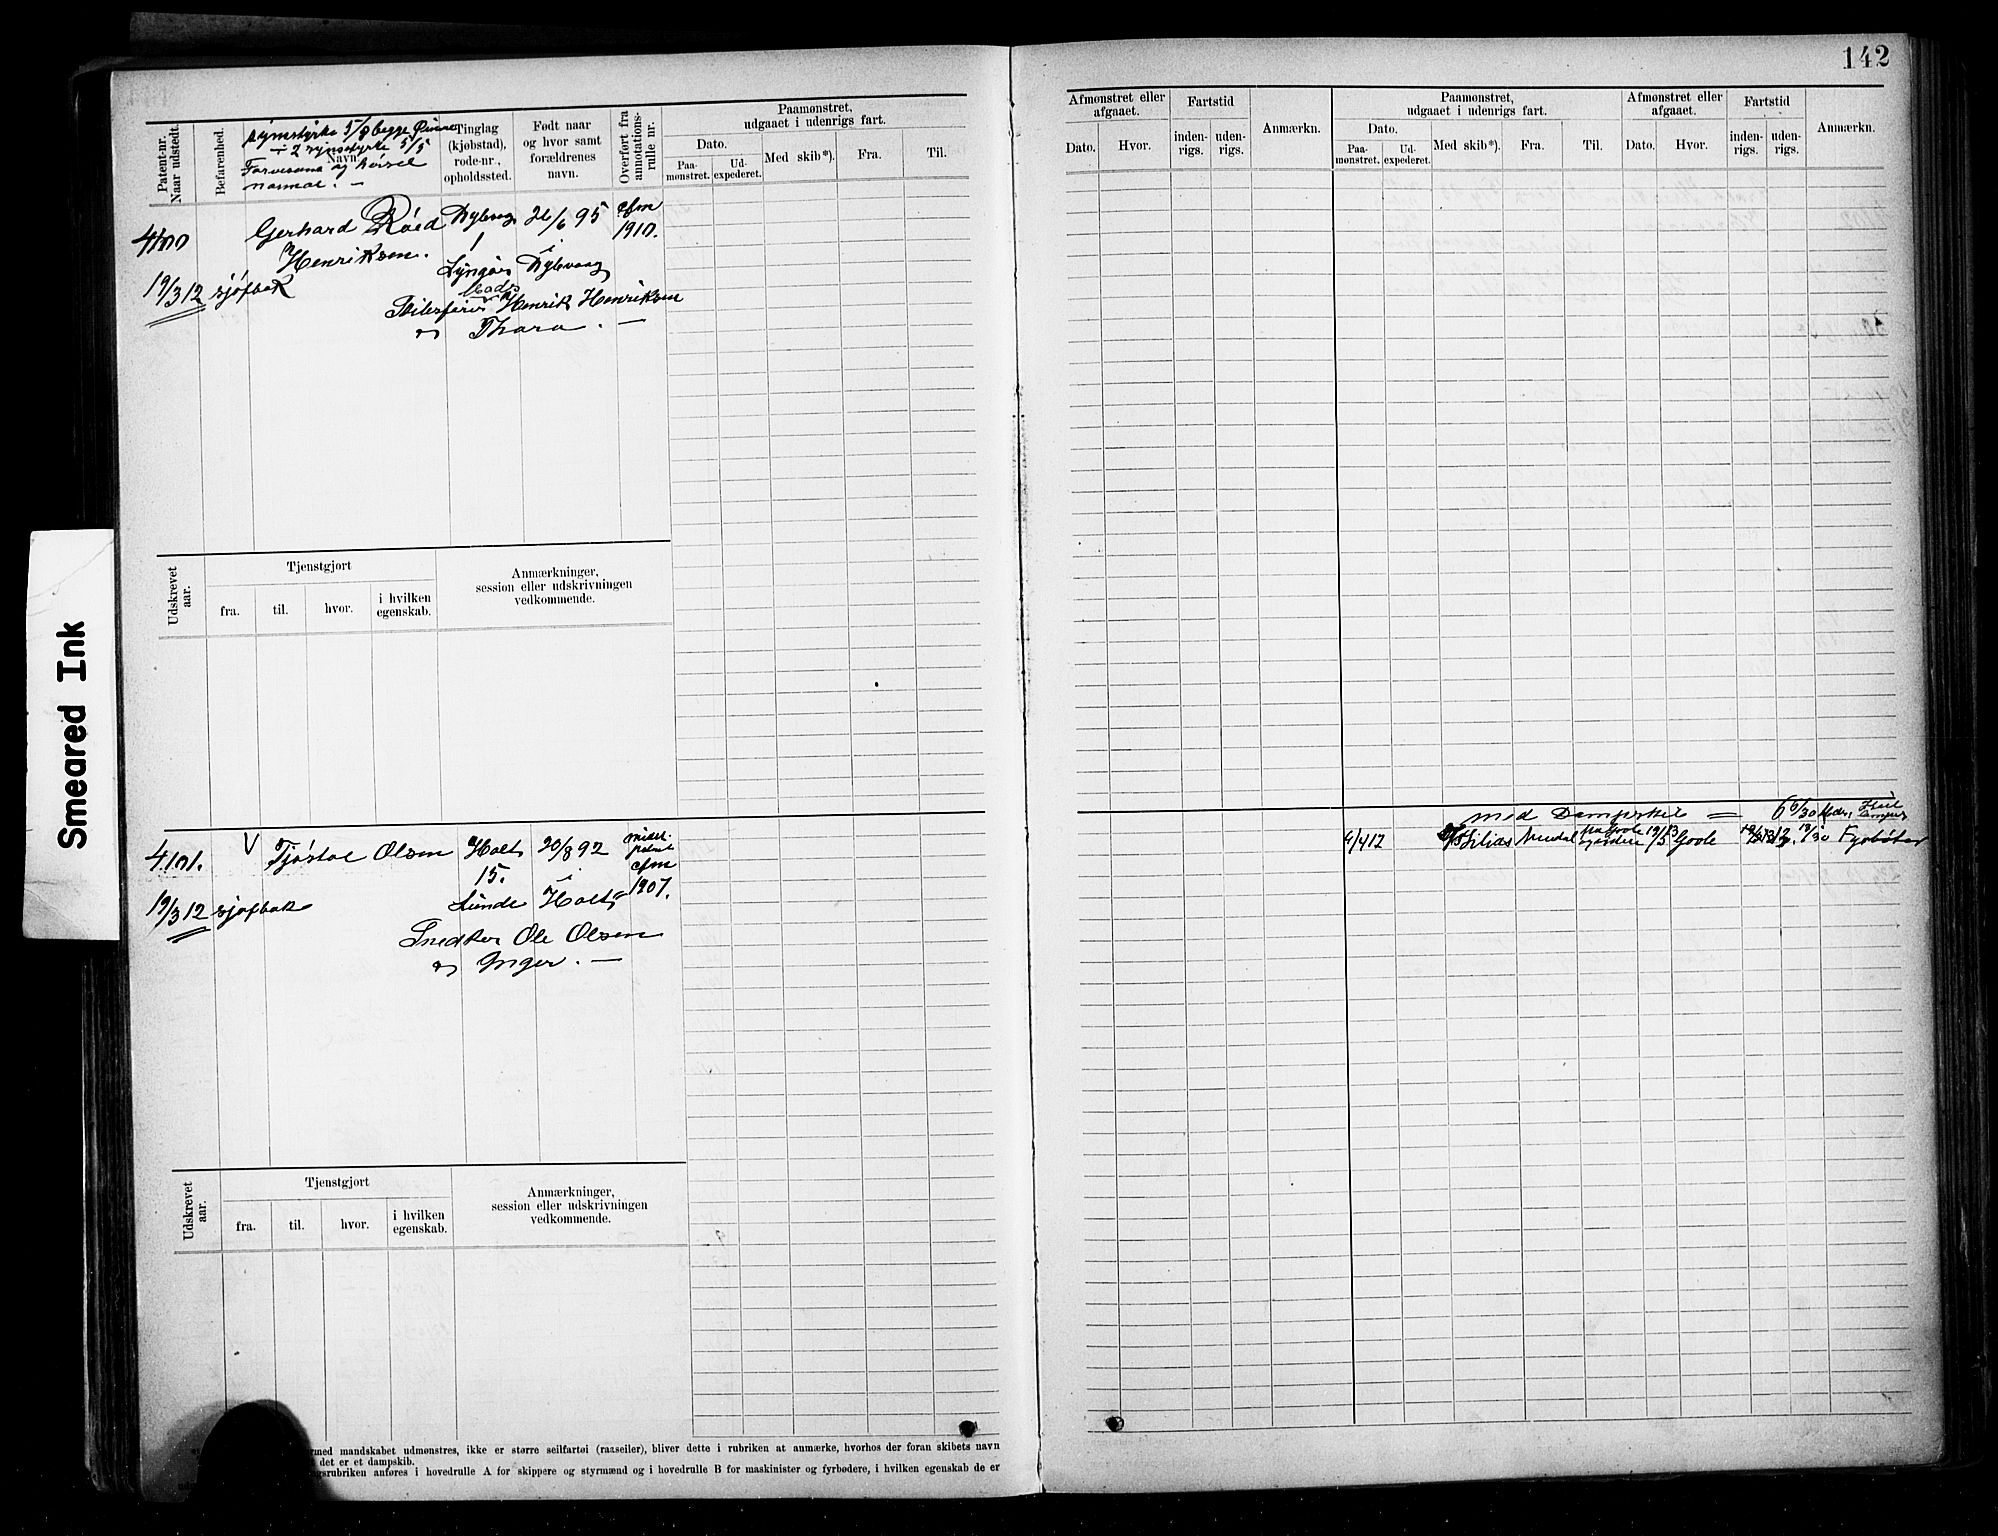 142
Patent-nr.
Naar udstedt.
Befarenhed.
synsstyrke 5/8 begge Øine
÷ 2 synsstyrke 5/5
Navn
Farvesans og hørsel
normal. —
Tinglag
(kjøbstad),
rode-nr.,
opholdssted.
Født naar
og hvor samt
forældrenes
navn.
Overført fra
annotations-
rulle nr.
Paamønstret,
udgaaet i udenrigs fart.
Dato.
Paa-
mønstret.
Ud-
expederet.
Med skib*).
Fra.
Til.
4100
Gerhard Røed
Dybvaag
26/6 95
cfm
1910.
Henriksen.
1
19/3 12
sjøfbok
Lyngør
Dybvaag
Mads
Henrik Henriksen
og Thora. —
Udskrevet
aar.
Tjenstgjort
fra.
til.
hvor.
i hvilken
egenskab.
Anmærkninger,
session eller udskrivningen
vedkommende.
4101.
V
Tjøstol Olsen
Holt
20/8 92
cfm
1907.
15.
19/3 12
sjøfbok
Lunde
Holt
Snedker Ole Olsen
og Inger. —
Udskrevet
aar.
Tjenstgjort
fra.
til.
hvor.
i hvilken
egenskab.
Anmærkninger,
session eller udskrivningen
vedkommende.
med mandskabet udmønstres, ikke er større seilfartøi (raaseiler), bliver dette i rubriken at anmærke, hvorhos der foran skibets navn
det er et dampskib.
anføres i hovedrulle A for skippere og styrmænd og i hovedrulle B for maskinister og fyrbødere, i hvilken egenskab de er
Afmønstret eller
afgaaet.
Dato.
Hvor.
Fartstid
inden-
rigs.
uden-
rigs.
Anmærkn.
Paamønstret,
udgaaet i udenrigs fart.
Dato.
Paa-
mønstret.
Ud-
expederet.
Med skib*).
Fra.
Til.
Afmønstret eller
afgaaet.
Dato.
Hvor.
Fartstid
inden-
rigs.
uden-
rigs.
Anmærkn.
med Dampskib =
6 6/30 Mdr.
4/4 12
Silius
Arendal
19/5 13
Goole
Fyrbøter
Smeared Ink